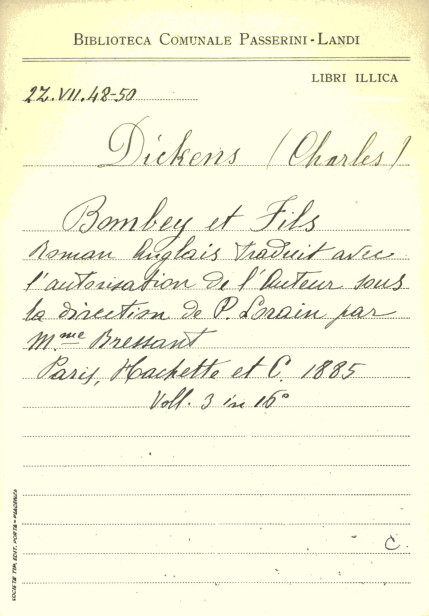 BIBLIOTECA COMUNALE PASSERINI-LANDI
LIBRI ILLICA
2Z.VII.48-50
Dickens (Charles)
Bombey et Fils
Roman Anglais traduit avec
l'autorisation de l'Auteur sous
la direction de P. Lorain par
M.me Bressant
Paris, Hachette et C. 1885
Voll. 3 in 16°
C.